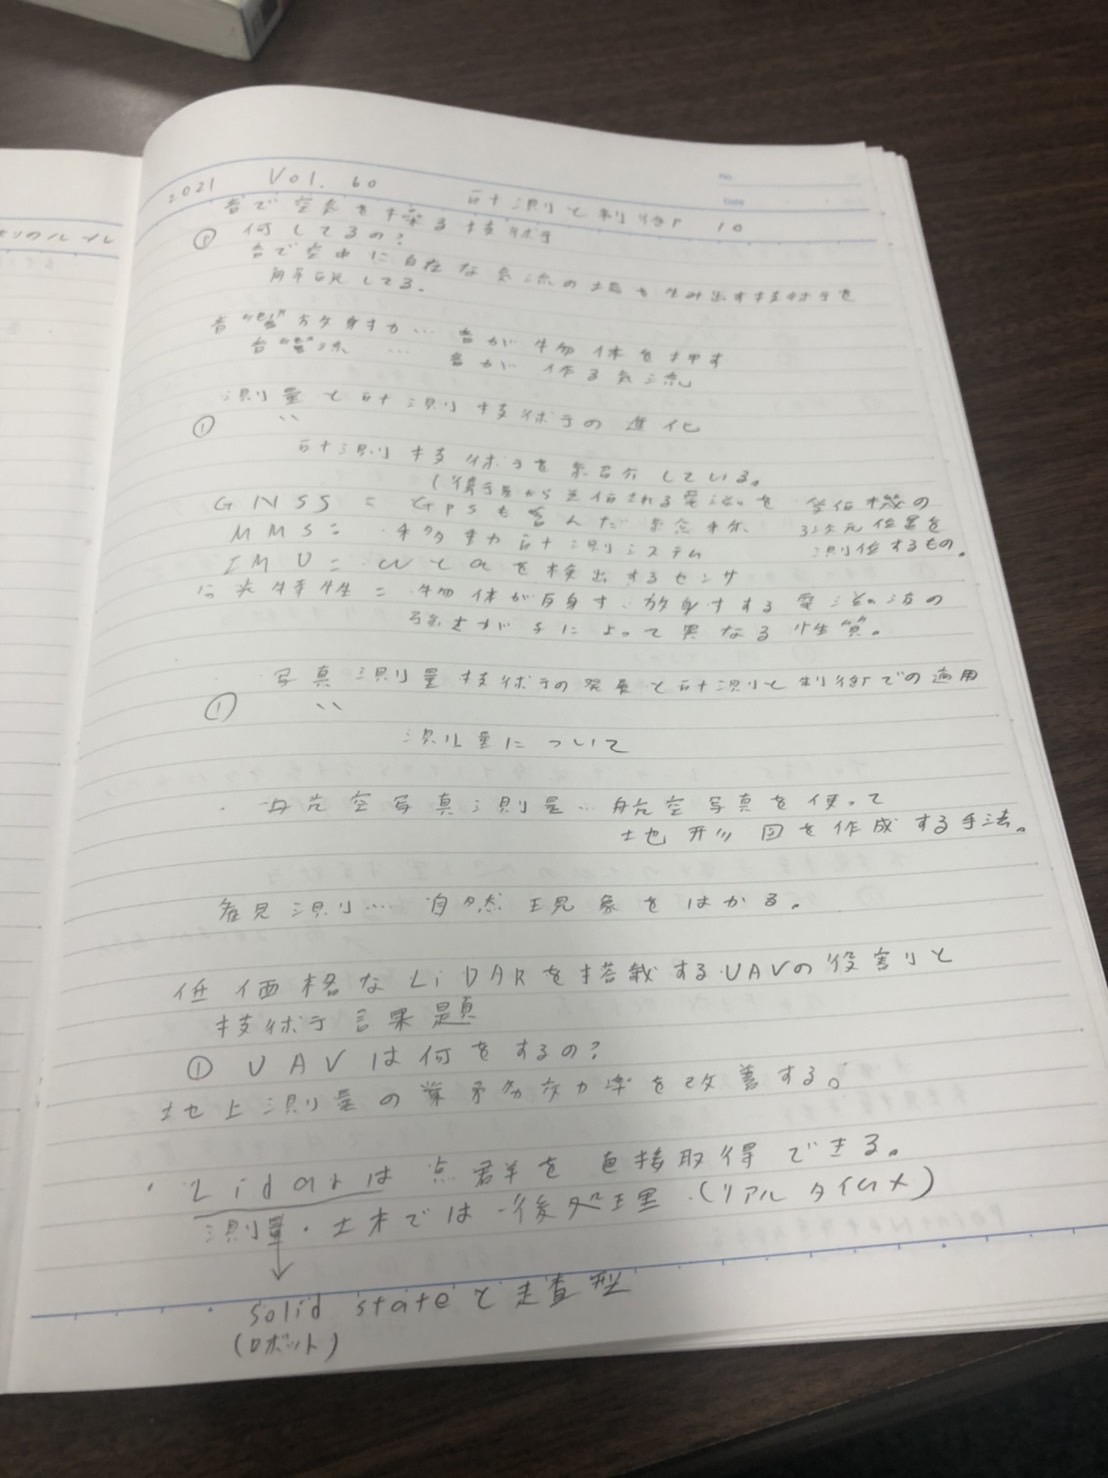 2021 Vol. 60 計測と制御 10
音で空気を操る技術
① 何してるの?
音で空中に自在な気流の場を生み出す技術を
解説してる。
音響放射力… 音が物体を押す
音響流 … 音が作る気流
測量と計測技術の進化
① 〃
計測技術を紹介している。
(衛星から送信される電波を 受信機の
GNSS = GPSも含んだ総称 3次元位置を
MMS = 移動計測システム 測位するもの。
IMU = ωとaを検出するセンサ
分光特性 = 物体が反射す、放射する電磁波の
強さがλによって異なる性質。
写真測量技術の発展と計測と制御での適用
① 〃
測量について
・航空写真測量…航空写真を使って
地形図を作成する手法。
観測… 自然現象をはかる。
低価格なLiDARを搭載するUAVの役割りと
技術課題
① UAVは何をするの?
地上測量の業務効率を改善する。
・Lidarは点群を直接取得できる。
測量・土木では→後処理・(リアルタイム×)
solid stateと走査型
(ロボット)
No.
Date